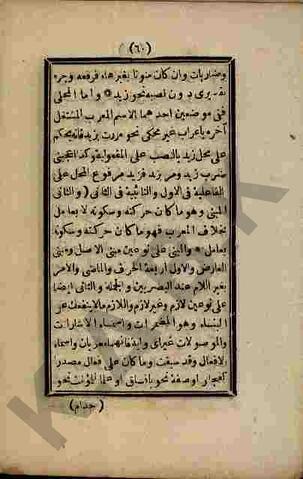 (٦٠)
وضاربات وان كان منونا بغيرهاء فرفعه وجره
تقديرى دون نصبه نحو زيد * واما المحلى
ففى موضعين احدهما الاسم المعرب المشتغل
آخره باعراب غير محكى نحو مررت بزيد فانه يحكم
على محل زيد بالنصب على المفعولية وكذا اعجبنى
ضرب زيد ومر بزيد فزيد مرفوع المحل على
الفاعلية فى الاول والنائبية فى الثانى (والثانى
المبنى) وهو ما كان حركته وسكونه لا بعامل
بخلاف المعرب فهو ما كان حركته وسكونه
بعامل * والمبنى على نوعين مبنى الاصل ومبنى
العارض والاول اربعة الحرف والماضى والامر
بغير اللام عند البصريين والجملة والثانى ايضا
على نوعين لازم وغير لازم واللازم ما لا ينفك عن
البناء وهو المضمرات واسماء الاشارات
والموصولات غير اى واية فانهما معربان واسماء
الافعال وقد سبقت وما كان على فعال مصدرا
كفجار او صفة نحو يا فساق او علما لمؤنث نحو
(حذام)